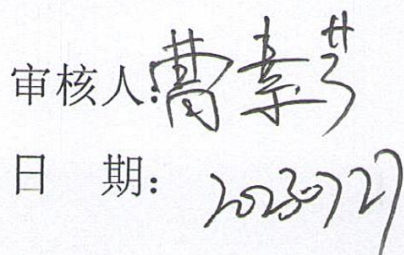 审核人:曹素芳
日 期：20230727